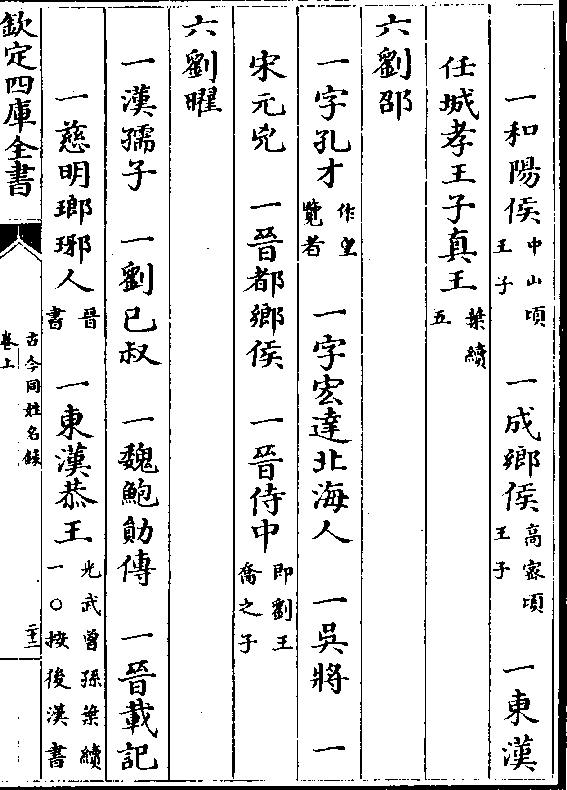 一和陽侯中山頃王子 一成鄉侯高宻頃王子 一東漢
任城孝王子真王葉續五
六劉邵
一字孔才作皇覽者 一字宏達北海人 一吳將 一
宋元兇 一晉都鄉侯 一晉侍中即劉王喬之子
六劉曜
一漢孺子 一劉已叔 一魏鮑勛傳 一晉載記
一慈明瑯琊人晉書 一東漢恭王光武曾孫葉續一○按後漢書
欽定四庫全書
古今同姓名錄
卷上